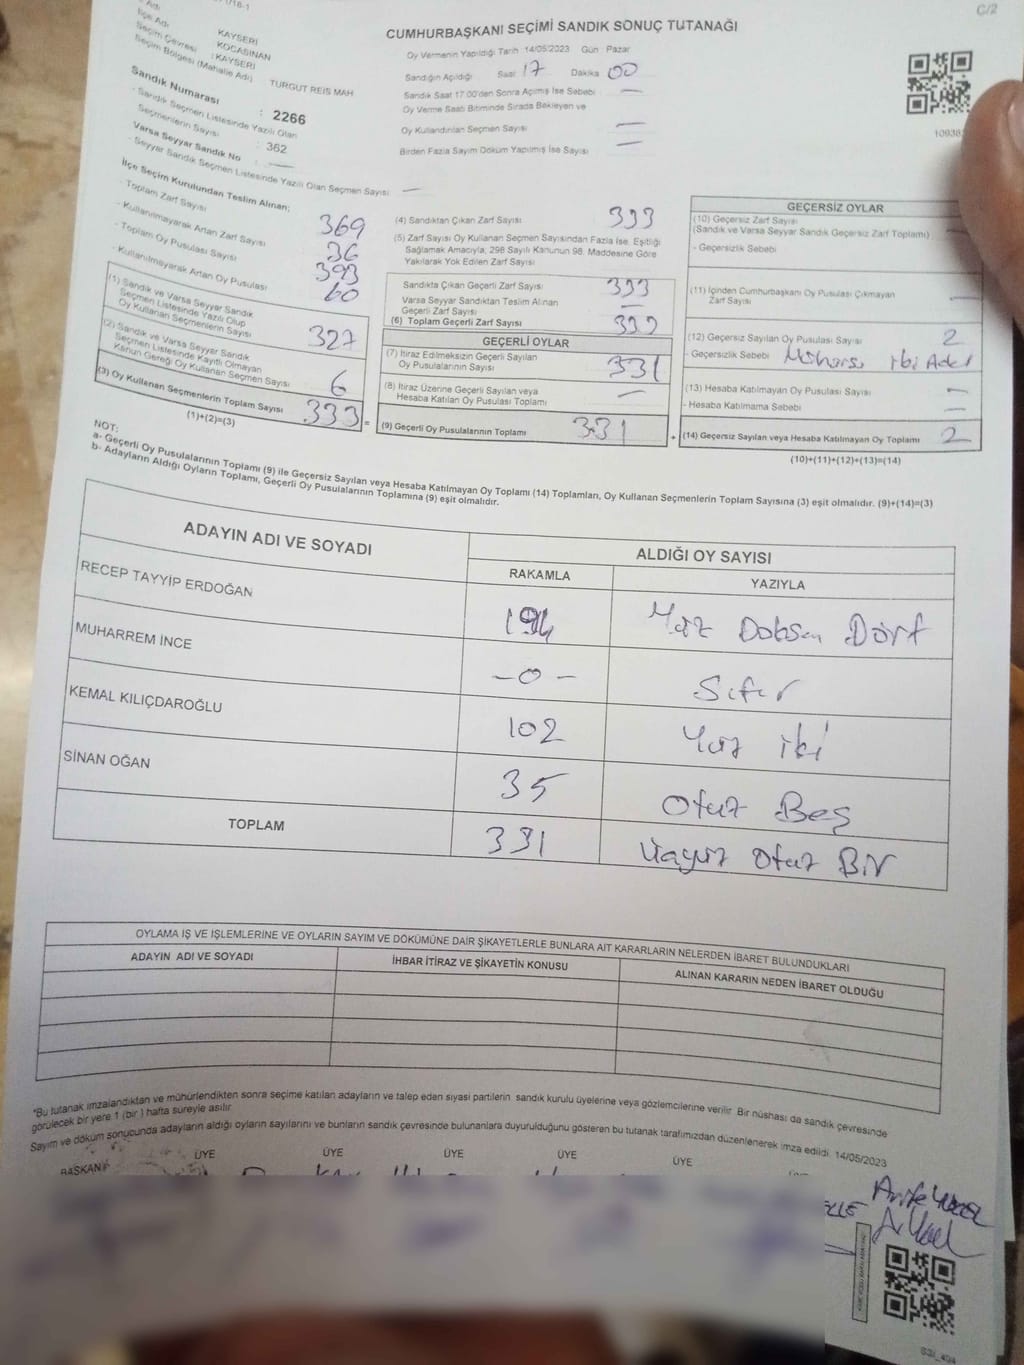 C/2
CUMHURBAŞKANI SEÇİMİ SANDIK SONUÇ TUTANAĞI
İlçe Adı
Seçim Çevresi
Seçim Bölgesi (Mahalle Adı)
KAYSERİ
KOCASİNAN
: KAYSERİ
TURGUT REİS MAH
Sandık Numarası : 2266
- Sandık Seçmen Listesinde Yazılı Olan
Seçmenlerin Sayısı : 362
Varsa Seyyar Sandık No : —
- Seyyar Sandık Seçmen Listesinde Yazılı Olan Seçmen Sayısı —
Oy Vermenin Yapıldığı Tarih 14/05/2023 Gün Pazar
Sandığın Açıldığı Saat 17 Dakika 00
Sandık Saat 17.00'den Sonra Açılmış İse Sebebi —
Oy Verme Saati Bitiminde Sırada Bekleyen ve
Oy Kullandırılan Seçmen Sayısı —
Birden Fazla Sayım Döküm Yapılmış İse Sayısı —
İlçe Seçim Kurulundan Teslim Alınan;
- Toplam Zarf Sayısı 369
- Kullanılmayarak Artan Zarf Sayısı 36
- Toplam Oy Pusulası Sayısı 393
- Kullanılmayarak Artan Oy Pusulası 60
(1) Sandık ve Varsa Seyyar Sandık
Seçmen Listesinde Yazılı Olup
Oy Kullanan Seçmenlerin Sayısı 327
(2) Sandık ve Varsa Seyyar Sandık
Seçmen Listesinde Kayıtlı Olmayan
Kanun Gereği Oy Kullanan Seçmen Sayısı 6
(3) Oy Kullanan Seçmenlerin Toplam Sayısı 333 =
(1)+(2)=(3)
(4) Sandıktan Çıkan Zarf Sayısı 333
(5) Zarf Sayısı Oy Kullanan Seçmen Sayısından Fazla İse, Eşitliği
Sağlamak Amacıyla, 298 Sayılı Kanunun 98. Maddesine Göre
Yakılarak Yok Edilen Zarf Sayısı
Sandıkta Çıkan Geçerli Zarf Sayısı 333
Varsa Seyyar Sandıktan Teslim Alınan
Geçerli Zarf Sayısı —
(6) Toplam Geçerli Zarf Sayısı 333
GEÇERLİ OYLAR
(7) İtiraz Edilmeksizin Geçerli Sayılan
Oy Pusulalarının Sayısı 331
(8) İtiraz Üzerine Geçerli Sayılan veya
Hesaba Katılan Oy Pusulası Toplamı —
(9) Geçerli Oy Pusulalarının Toplamı 331 +
GEÇERSİZ OYLAR
(10) Geçersiz Zarf Sayısı
(Sandık ve Varsa Seyyar Sandık Geçersiz Zarf Toplamı) —
- Geçersizlik Sebebi
(11) İçinden Cumhurbaşkanı Oy Pusulası Çıkmayan
Zarf Sayısı —
(12) Geçersiz Sayılan Oy Pusulası Sayısı 2
- Geçersizlik Sebebi iki Adet
(13) Hesaba Katılmayan Oy Pusulası Sayısı —
- Hesaba Katılmama Sebebi —
(14) Geçersiz Sayılan veya Hesaba Katılmayan Oy Toplamı 2
(10)+(11)+(12)+(13)=(14)
NOT:
a- Geçerli Oy Pusulalarının Toplamı (9) ile Geçersiz Sayılan veya Hesaba Katılmayan Oy Toplamı (14) Toplamları, Oy Kullanan Seçmenlerin Toplam Sayısına (3) eşit olmalıdır. (9)+(14)=(3)
b- Adayların Aldığı Oyların Toplamı, Geçerli Oy Pusulalarının Toplamına (9) eşit olmalıdır.
ADAYIN ADI VE SOYADI
ALDIĞI OY SAYISI
RAKAMLA YAZIYLA
RECEP TAYYİP ERDOĞAN 194 Yüz Doksan Dört
MUHARREM İNCE -0- Sıfır
KEMAL KILIÇDAROĞLU 102 Yüz iki
SİNAN OĞAN 35 Otuz Beş
TOPLAM 331 Üçyüz Otuz Bir
OYLAMA İŞ VE İŞLEMLERİNE VE OYLARIN SAYIM VE DÖKÜMÜNE DAİR ŞİKAYETLERLE BUNLARA AİT KARARLARIN NELERDEN İBARET BULUNDUKLARI
ADAYIN ADI VE SOYADI
İHBAR İTİRAZ VE ŞİKAYETİN KONUSU
ALINAN KARARIN NEDEN İBARET OLDUĞU
*Bu tutanak imzalandıktan ve mühürlendikten sonra seçime katılan adayların ve talep eden siyasi partilerin sandık kurulu üyelerine veya gözlemcilerine verilir. Bir nüshası da sandık çevresinde
görülecek bir yere 1 (bir ) hafta süreyle asılır.
Sayım ve döküm sonucunda adayların aldığı oyların sayılarını ve bunların sandık çevresinde bulunanlara duyurulduğunu gösteren bu tutanak tarafımızdan düzenlenerek imza edildi. 14/05/2023
BAŞKAN ÜYE ÜYE ÜYE ÜYE ÜYE